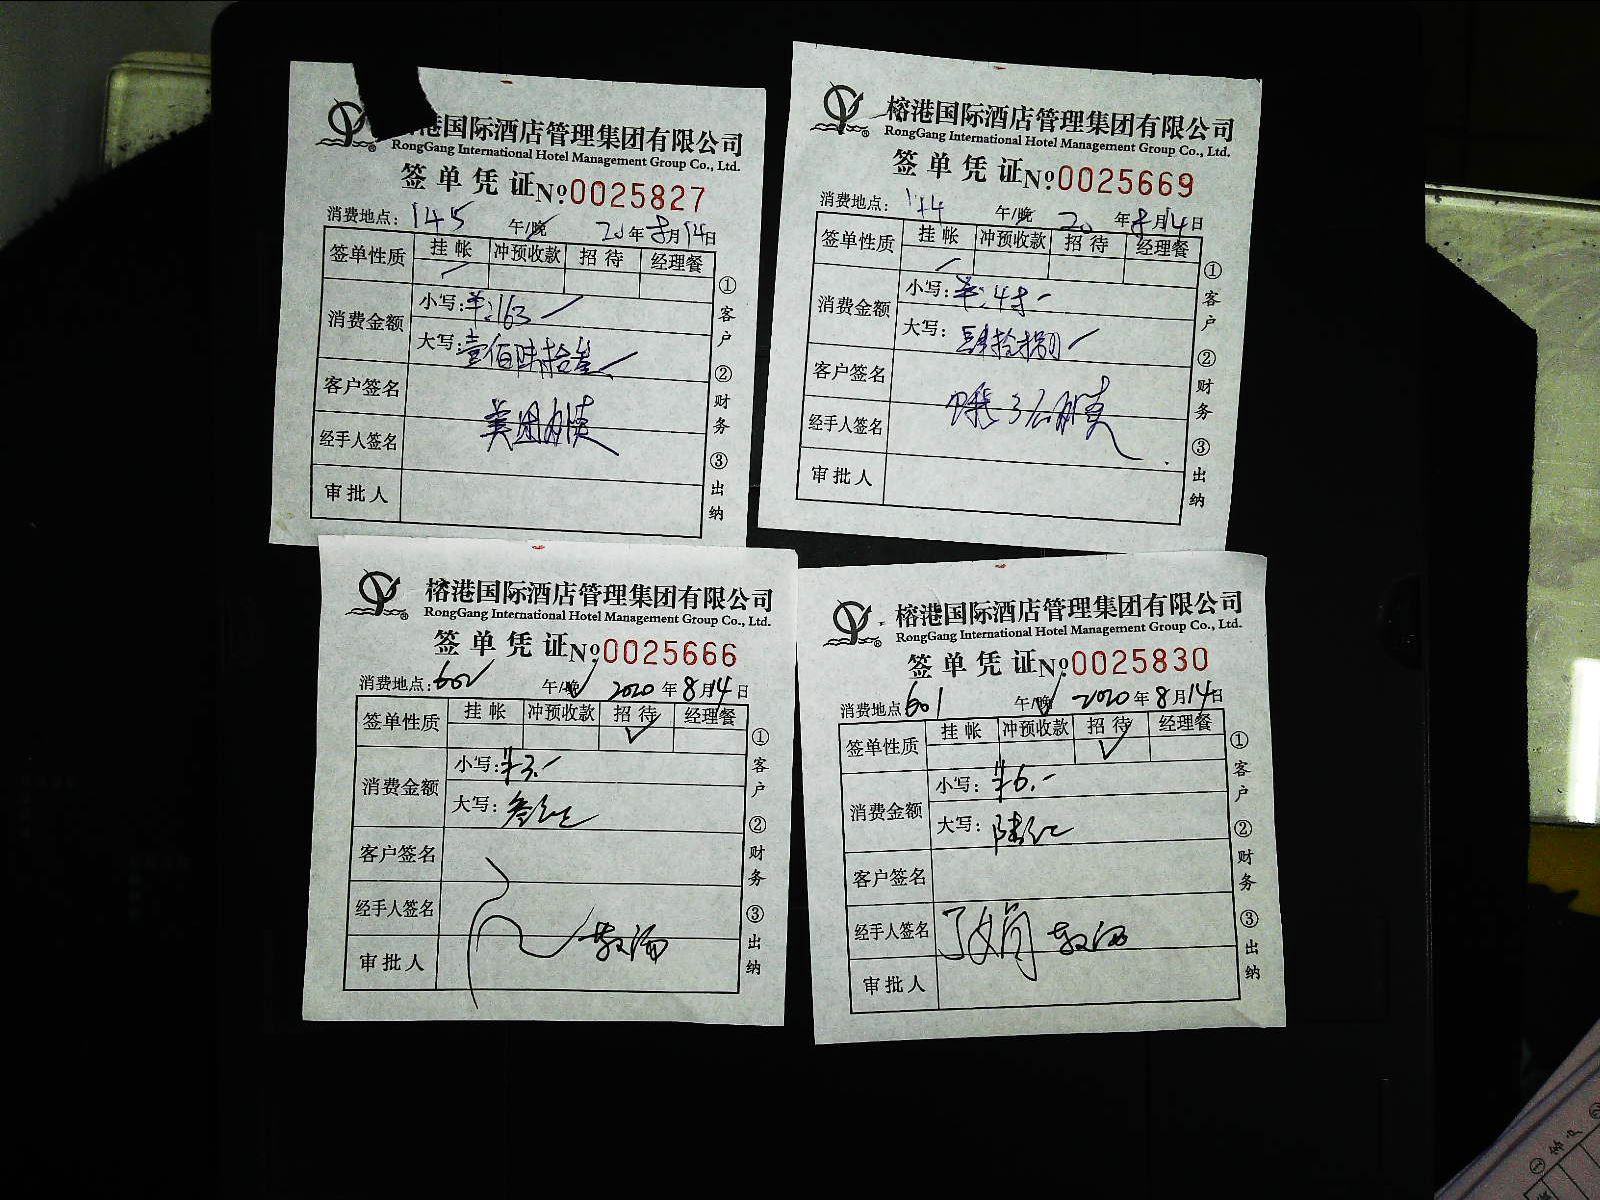 港国际酒店管理集团有限公司
RongGang International Hotel Management Group Co., Ltd.
签单凭证 №0025827
消费地点：145 午/晚 20年8月14日
签单性质 挂帐 冲预收款 招待 经理餐
消费金额 小写：¥:163
大写：壹佰陆拾叁
客户签名
经手人签名 美团
审批人
①客户 ②财务 ③出纳
榕港国际酒店管理集团有限公司
RongGang International Hotel Management Group Co., Ltd.
签单凭证 №0025669
消费地点： 午/晚 20年8月14日
签单性质 挂帐 冲预收款 招待 经理餐
消费金额 小写：¥:48
大写：肆拾捌
客户签名
经手人签名
审批人
①客户 ②财务 ③出纳
榕港国际酒店管理集团有限公司
RongGang International Hotel Management Group Co., Ltd.
签单凭证 №0025666
消费地点：602 午/晚 2020年8月14日
签单性质 挂帐 冲预收款 招待 经理餐
消费金额 小写：¥3.
大写：叁元
客户签名
经手人签名 敬酒
审批人
①客户 ②财务 ③出纳
榕港国际酒店管理集团有限公司
RongGang International Hotel Management Group Co., Ltd.
签单凭证 №0025830
消费地点 601 午/晚 2020年8月14日
签单性质 挂帐 冲预收款 招待 经理餐
消费金额 小写：¥6.
大写：陆元
客户签名
经手人签名 敬酒
审批人
①客户 ②财务 ③出纳